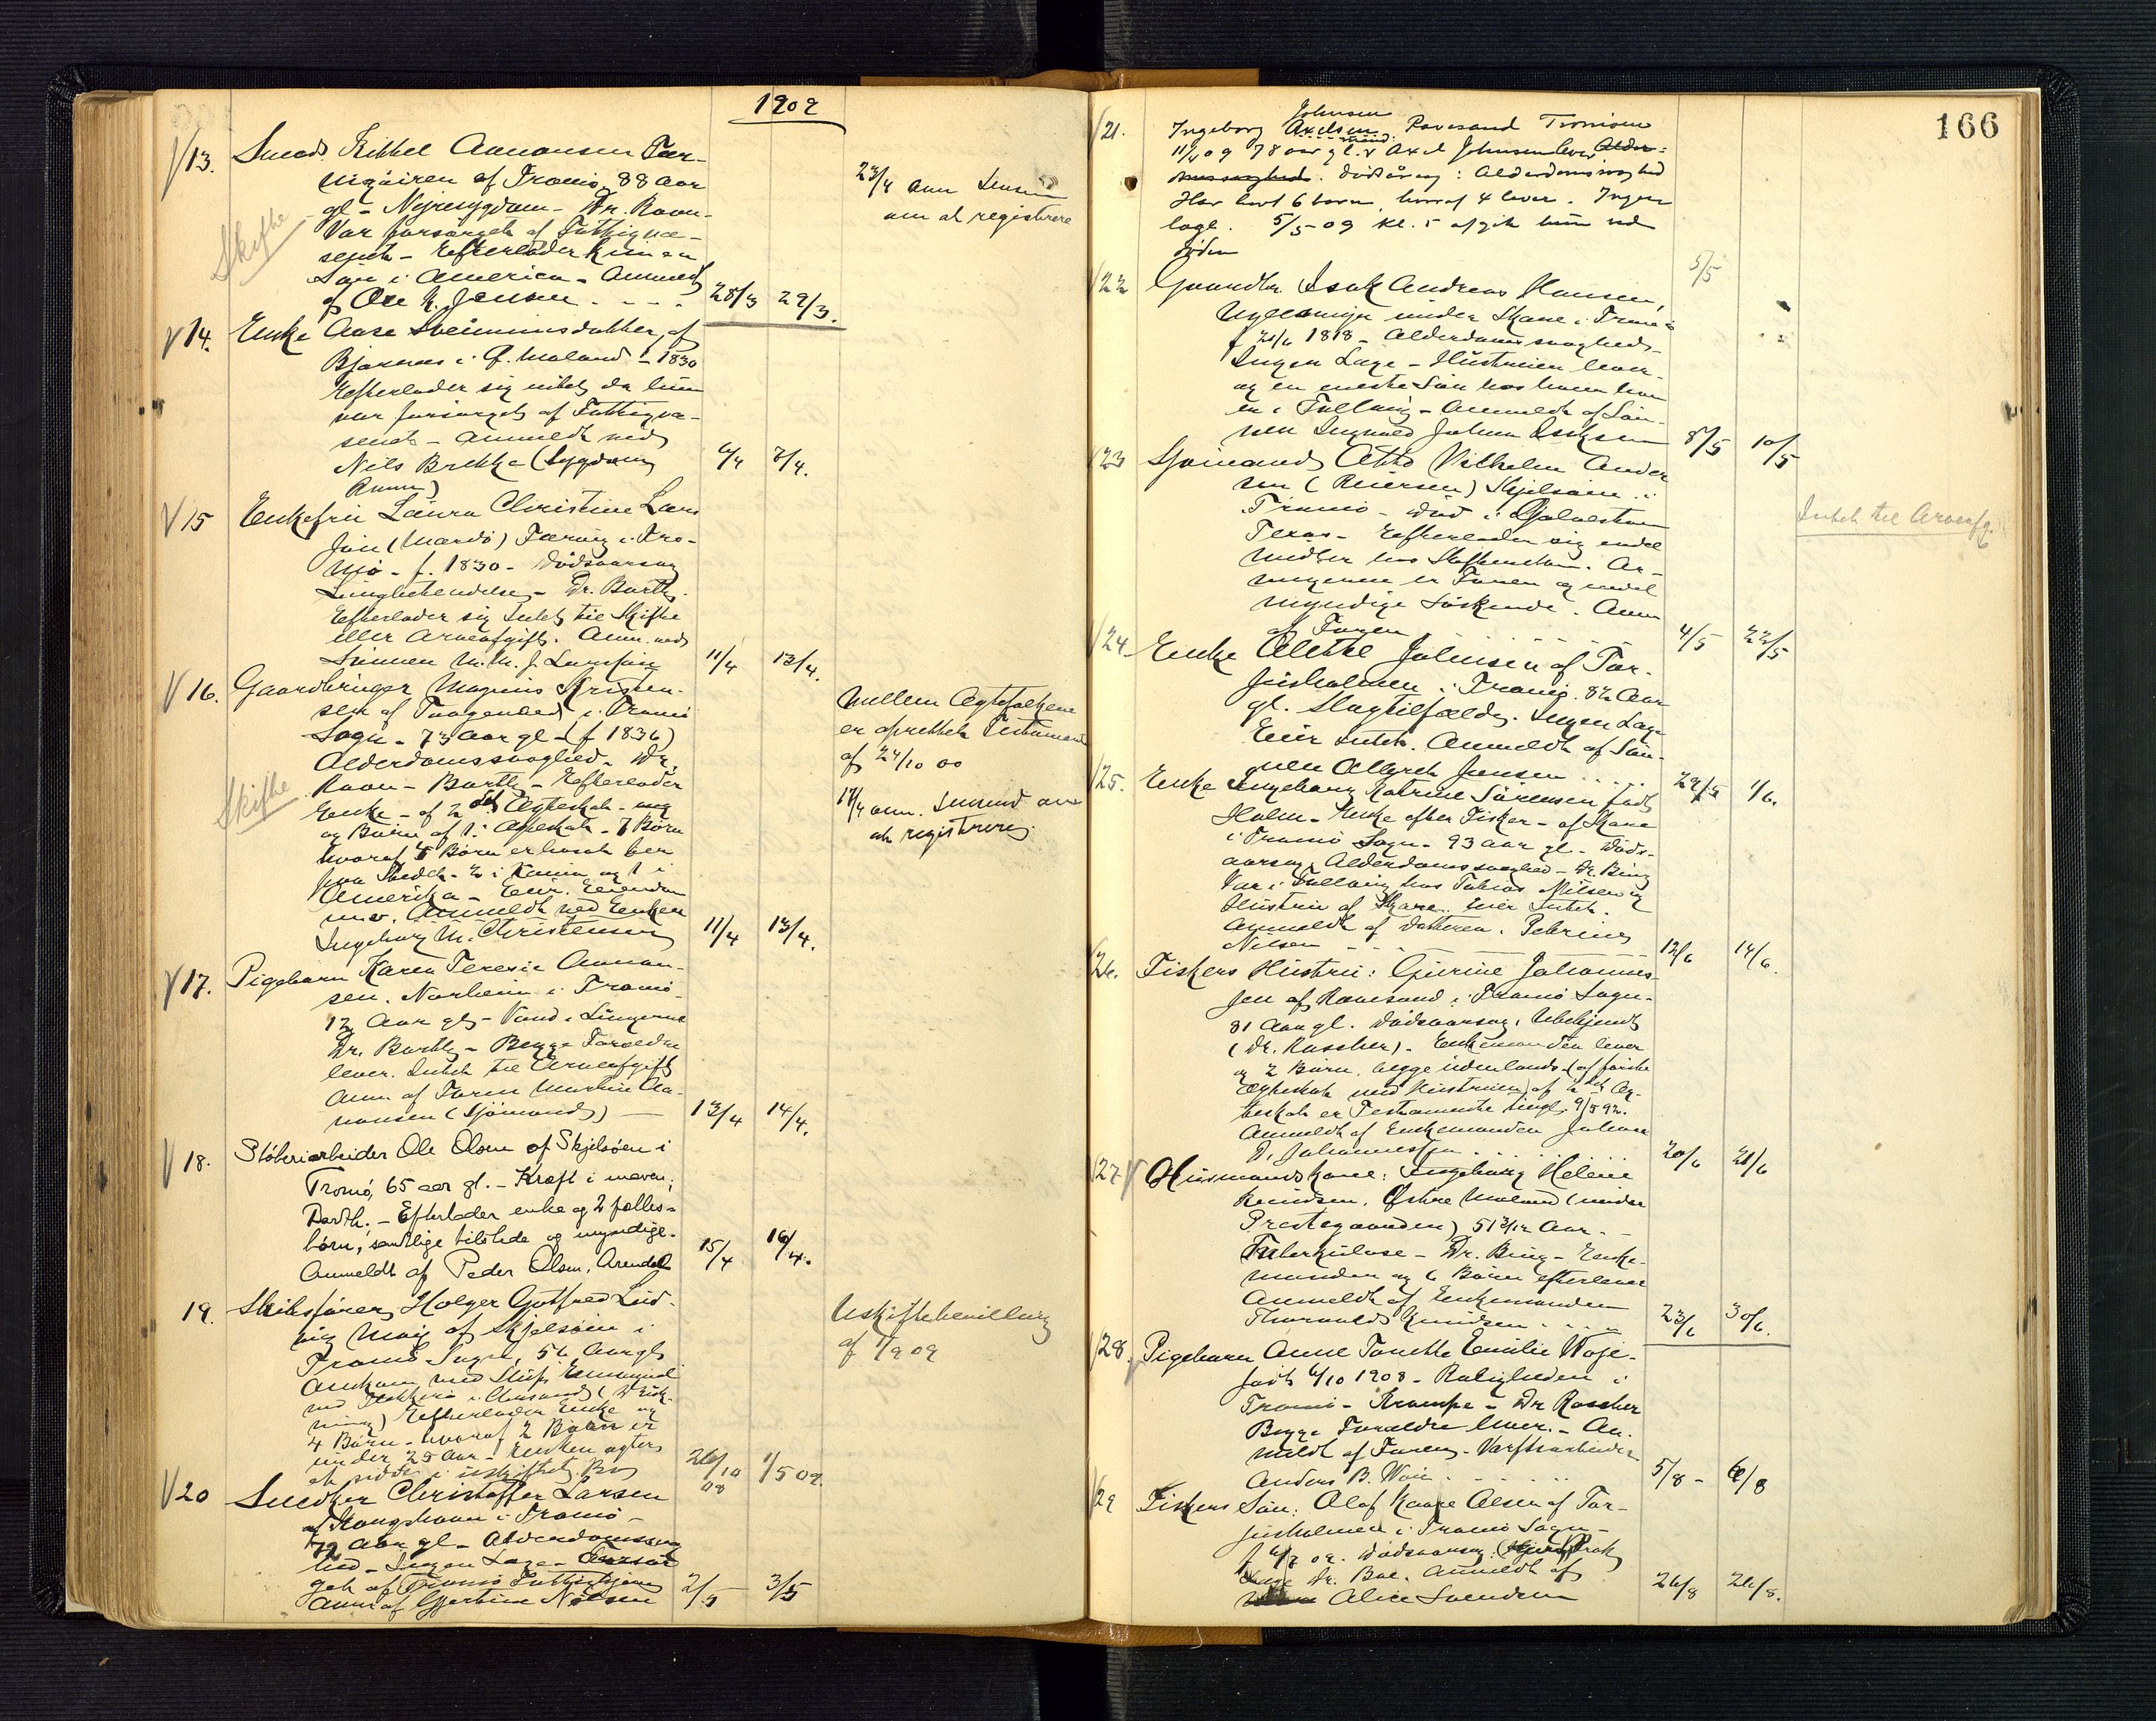 1909
13. Smed Kittel Aanonsen Tor-
af Tromø, 88 Aar
gl - Nyresygdom - Dr. Raun-
Var forsørget af Fattigvæ-
senet - Efterlader kun en
Søn i America - Anmeldt
af Ole K. Jensen . - - . 28/3 29/3.
Skifte
23/4 anm Lensm
om at registrere
14. Enke Aase Svenningsdatter af
Bjørnnes i Ø. Moland - 1830
Efterlader sig intet da hun
var forsørget af Fattigvæ-
senet - Anmeldt ved
Nils Brekke (Sygdom 6/4 7/4.
15 Enkefru Laura Christine Lars
sen (Mærdø) Færvig i Tro-
mø - f. 1830 - Dødsaarsag
Lungebetændelse - Dr. Barth.
Efterlader sig Intet til Skifte
eller Arveafgift. Anm. ved
Sønnen M. M. J. 11/4 13/4.
16. Gaardbruger Magnus Kristen-
sen af i Tromø
Sogn - 73 Aar gl - (f 1836)
Alderdomssvaghed - Dr.
Raun - Barth - Efterlader
Enke - af 2det Ægteskab -
og Børn af 1. Ægteskab - 7 Børn
hvoraf 4 Børn er bosat her
paa Stedet - 2 i og 1 i
Amerika - Eier Eiendom
m.v. Anmeldt ved Enken
Ingeborg M. Christensen 11/4 13/4.
Skifte
Mellem Ægtefolkene
er oprettet Testament
af 24/10 00
17/4 anm. Lensmd om
at registrere
17. Pigebarn Karen Teresie Aanon-
sen. Norheim i Tromø.
12 Aar gl - Vand i Lungerne
Dr. Barth - Begge Forældre
lever. Intet til Arveafgift
Anm. af Faren Martin Aa-
nonsen (Sjømand) — 13/4 14/4.
18. Støberiarbeider Ole Olsen af Skjelsøen i
Tromø, 65 aar gl. - Kræft i maven;
Barth. - Efterlader enke og 2 fælles-
børn, samtlige tilstede og myndige.
Anmeldt af Peder Olsen, Arendal 15/4 16/4.
19. Skibsfører Holger Gotfred Lud-
vig May af Skjelsøen i
Tromø Sogn, 56 Aar gl
Omkom med Skib
ved
Efterlader Enke og
4 Børn - hvoraf 2 Børn er
under 25 Aar - Enken agter
at sidde i uskiftet Bo 26/10 08 1/5 09.
Uskiftebevilling
af 1/9 09
20 Snedker Christoffer Larsen
af Kongshavn i Tromø -
79 Aar gl - Alderdomssvag
hed - Ingen Læge - Forsør
get af Tromø
Anm af Gjertine Nilsen 2/5 3/5
166
21. Johnsen
Ingeborg Axelsen Ravesand Tromøen
11/4 09 78 aar gl. mand Axel Johnsen lever
Dødsårsag: Alderdomssvaghed
Har havt 6 børn, hvoraf 4 lever. Ingen
læge. 5/5 - 09 kl. 5 afgik hun ved
døden 5/5
22 Gaardbr. Isak Andreas Hansen,
under Skare i Tromø
f 21/6 1818 - Alderdomssvaghed -
Ingen Læge - Hustruen lever -
og en eneste Søn hos hvem han
er i Følling - Anmeldt af Søn-
nen Ingvald Johan Isaksen 8/5 10/5
23 Sjømand Otto Vilhelm Ander
sen (Reiersen) Skjelsøen i
Tromø - død i Galveston
Texas - Efterlader sig endel
Midler hos Skifteretten. Ar-
vingerne er Faren og endel
myndige Søskende. Anm
af Faren 4/5 22/5
Intet til Arveafg.
24. Enke Alette Johnsen af Tor-
jusholmen i Tromø. 82 Aar
gl. Slagtilfælde. Ingen Læge
Eier Intet. Anmeldt af Søn-
nen Albert Jensen . . . . . 29/5 1/6.
25. Enke Ingeborg Katrine Sørensen født
Holm - Enke efter Fisker - af Skare
i Tromø Sogn - 93 Aar gl - Døds-
aarsag Alderdomssvaghed - Dr. Bing
Var i Følling hos Tobias Nilsen og
Hustru af Skare. Eier Intet.
Anmeldt af Datteren: Petrine
Nilsen 12/6 14/6.
26. Fiskers Hustru: Gurine Johannes-
sen af Ravesand i Tromø Sogn -
81 Aar gl. Dødsaarsag: Ubekjendt
(Dr. Rascher) - Enkemanden lever
og 2 Børn, begge udenlands (af første
Ægteskab med Hustruen) af 2det Æg-
teskab er Testamente tingl. 9/5 92.
Anmeldt af Enkemanden Johan
J. Johannessen . . . . . 20/6 21/6
27 Husmandskone: Ingeborg Helene
Knudsen. Østre Moland (under
Prestegaarden) 51 3/12 Aar. -
Tuberkulose - Dr. Bing - Enke-
manden og 6 Børn efterlever
Anmeldt af Enkemanden
Thorvald Knudsen . . . . 23/6 30/6.
28. Pigebarn Anne Tomette Emilie Woje -
født 6/10 1908 - Roligheden i
Tromø - Krampe - Dr Rascher
Begge Forældre lever. - An-
meldt af Faren - Værftsarbeider
Anders B. Woie . . . . . 5/8 - 6/8
29 Fiskers Søn: Olaf Kaare Olsen af Tor-
jusholmen i Tromø Sogn -
f 09. Dødsaarsag:
Dr. Boe. Anmeldt af
Alice Svendsen 26/8 26/8.